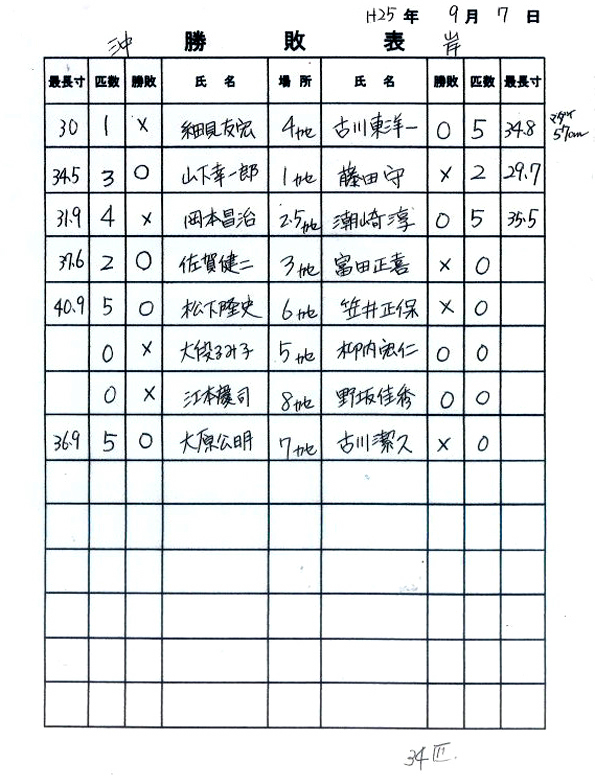 H25年 9月 7日
沖 勝敗表 岸
最長寸 匹数 勝敗 氏名 場所 氏名 勝敗 匹数 最長寸
30 1 × 細見友宏 4かセ 古川東洋一 0 5 34.8 マダイ 57cm
34.5 3 0 山下幸一郎 1かセ 藤田守 × 2 29.7
31.9 4 × 岡本昌治 2.5かセ 潮崎淳 0 5 35.5
37.6 2 0 佐賀健二 3かセ 富田正喜 × 0
40.9 5 0 松下隆史 6かセ 笠井正保 × 0
0 × 大段るみ子 5かセ 柳内宏仁 0 0
0 × 江本慶司 8かセ 野坂佳秀 0 0
36.9 5 0 大原公明 7かセ 古川潔久 × 0
34匹